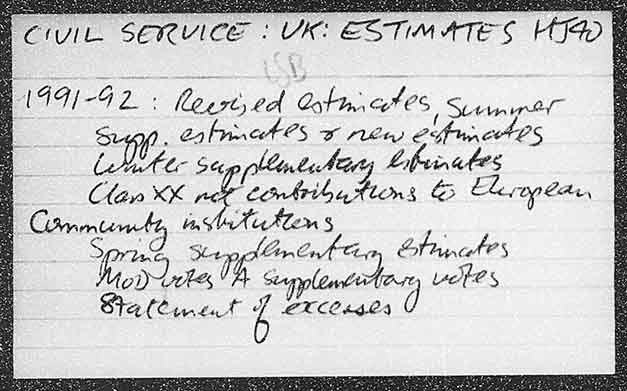 CIVIL SERVICE : UK: ESTIMATES HJ40
LSB
1991-92 : Revised estimates, Summer
supp. estimates & new estimates
Winter supplementary Estimates
Class XX net contributions to European
Community institutions
Spring supplementary estimates
MoD votes A supplementary votes
Statement of excesses